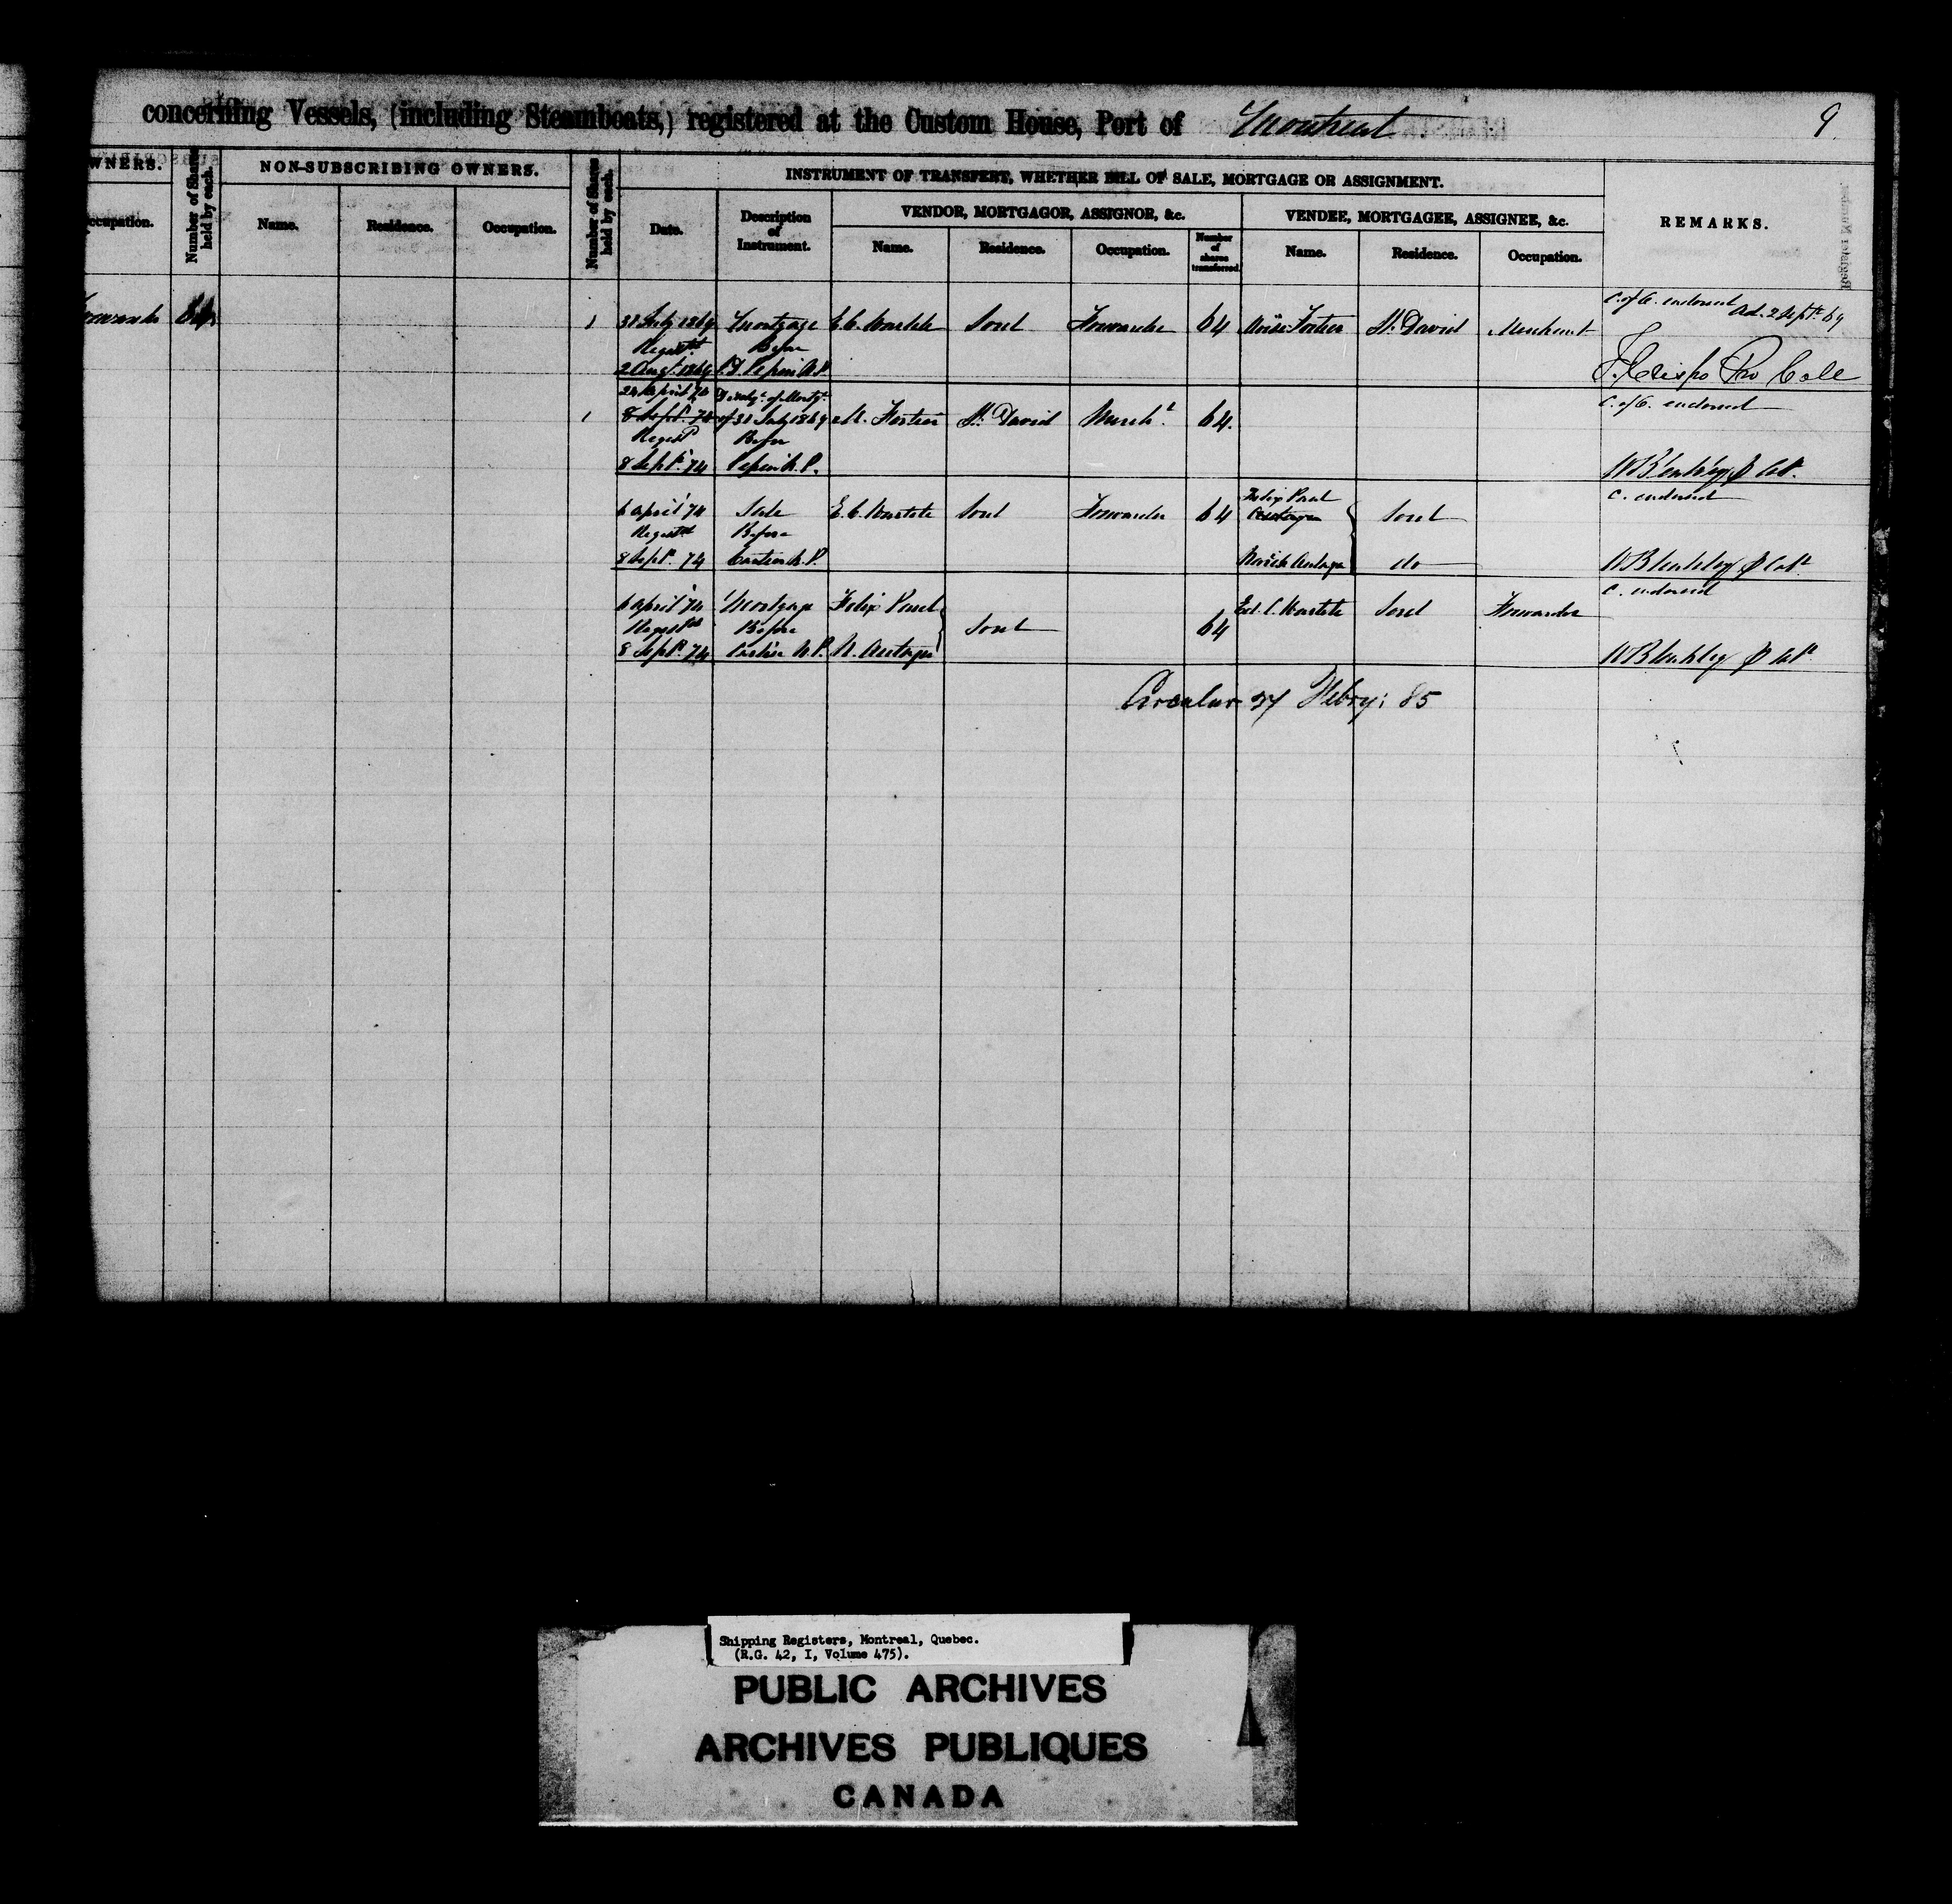 concerning Vessels, (including Steamboats,) registered at the Custom House, Port of Montreal
9
WNERS.
ccupation.
Number of Shares held by each.
NON-SUBSCRIBING OWNERS.
Name. Residence. Occupation.
Number of Shares held by each.
INSTRUMENT OF TRANSFERT, WHETHER BILL OF SALE, MORTGAGE OR ASSIGNMENT.
Date.
Description of Instrument.
VENDOR, MORTGAGOR, ASSIGNOR, &c.
Name. Residence. Occupation.
Number of shares transferred.
VENDEE, MORTGAGEE, ASSIGNEE, &c.
Name. Residence. Occupation.
REMARKS.
64
1 31 July 1869 Mortgage E. C. Sorel Forwarder 64 Moïse Fortier St. David Merchant C. of O. endorsed Ad. 2 Sept. 69
Regist Before
2 Aug. 1869 Pepin N.P.
24 April 74 of Mortg.
1 8 Sept. 74 of 31 July 1869 M. Fortier St. David Merch.t 64. C. of O. endorsed
Regist Before
8 Sept. 74 Pepin N.P.
6 April 74 Sale E. C. Sorel Forwarder 64 Felix Paul Sorel C. endorsed
Regist Before
8 Sept. 74 N.P. do
6 April 74 Mortgage Felix Paul Sorel 64 Ed. C. Sorel Forwarder C. endorsed
Regist Before
8 Sept. 74 N.P. N.
Circular 27 Febry: 85
Shipping Registers, Montreal, Quebec.
(R.G. 42, I, Volume 475).
PUBLIC ARCHIVES
ARCHIVES PUBLIQUES
CANADA